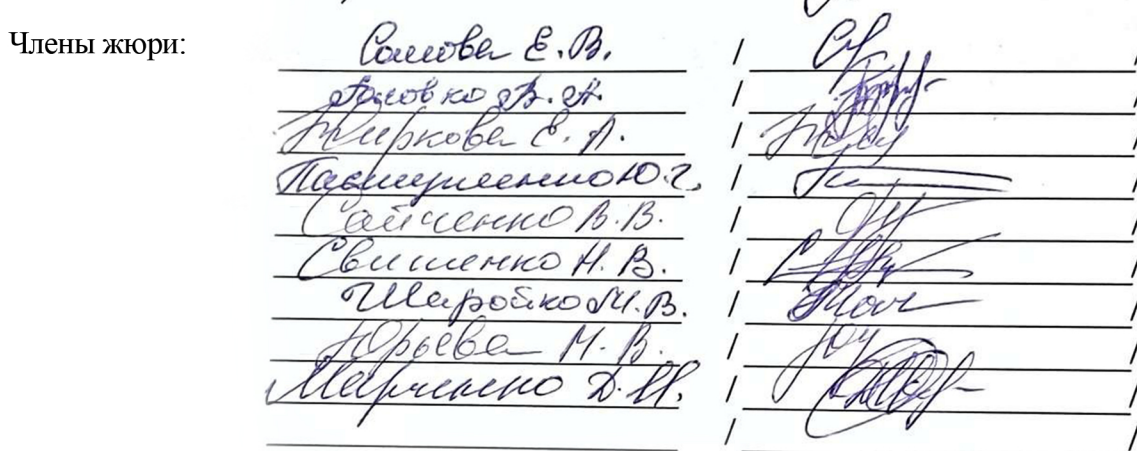 Члены жюри:
Сомова Е. В. /
Головко В. А. /
Жиркова Е. Л. /
Пасишниченко Ю. Г. /
Сайченко В. В. /
Свишенко Н. В. /
Шаройко М. В. /
Юрьева М. В. /
Марченко Д. И. /